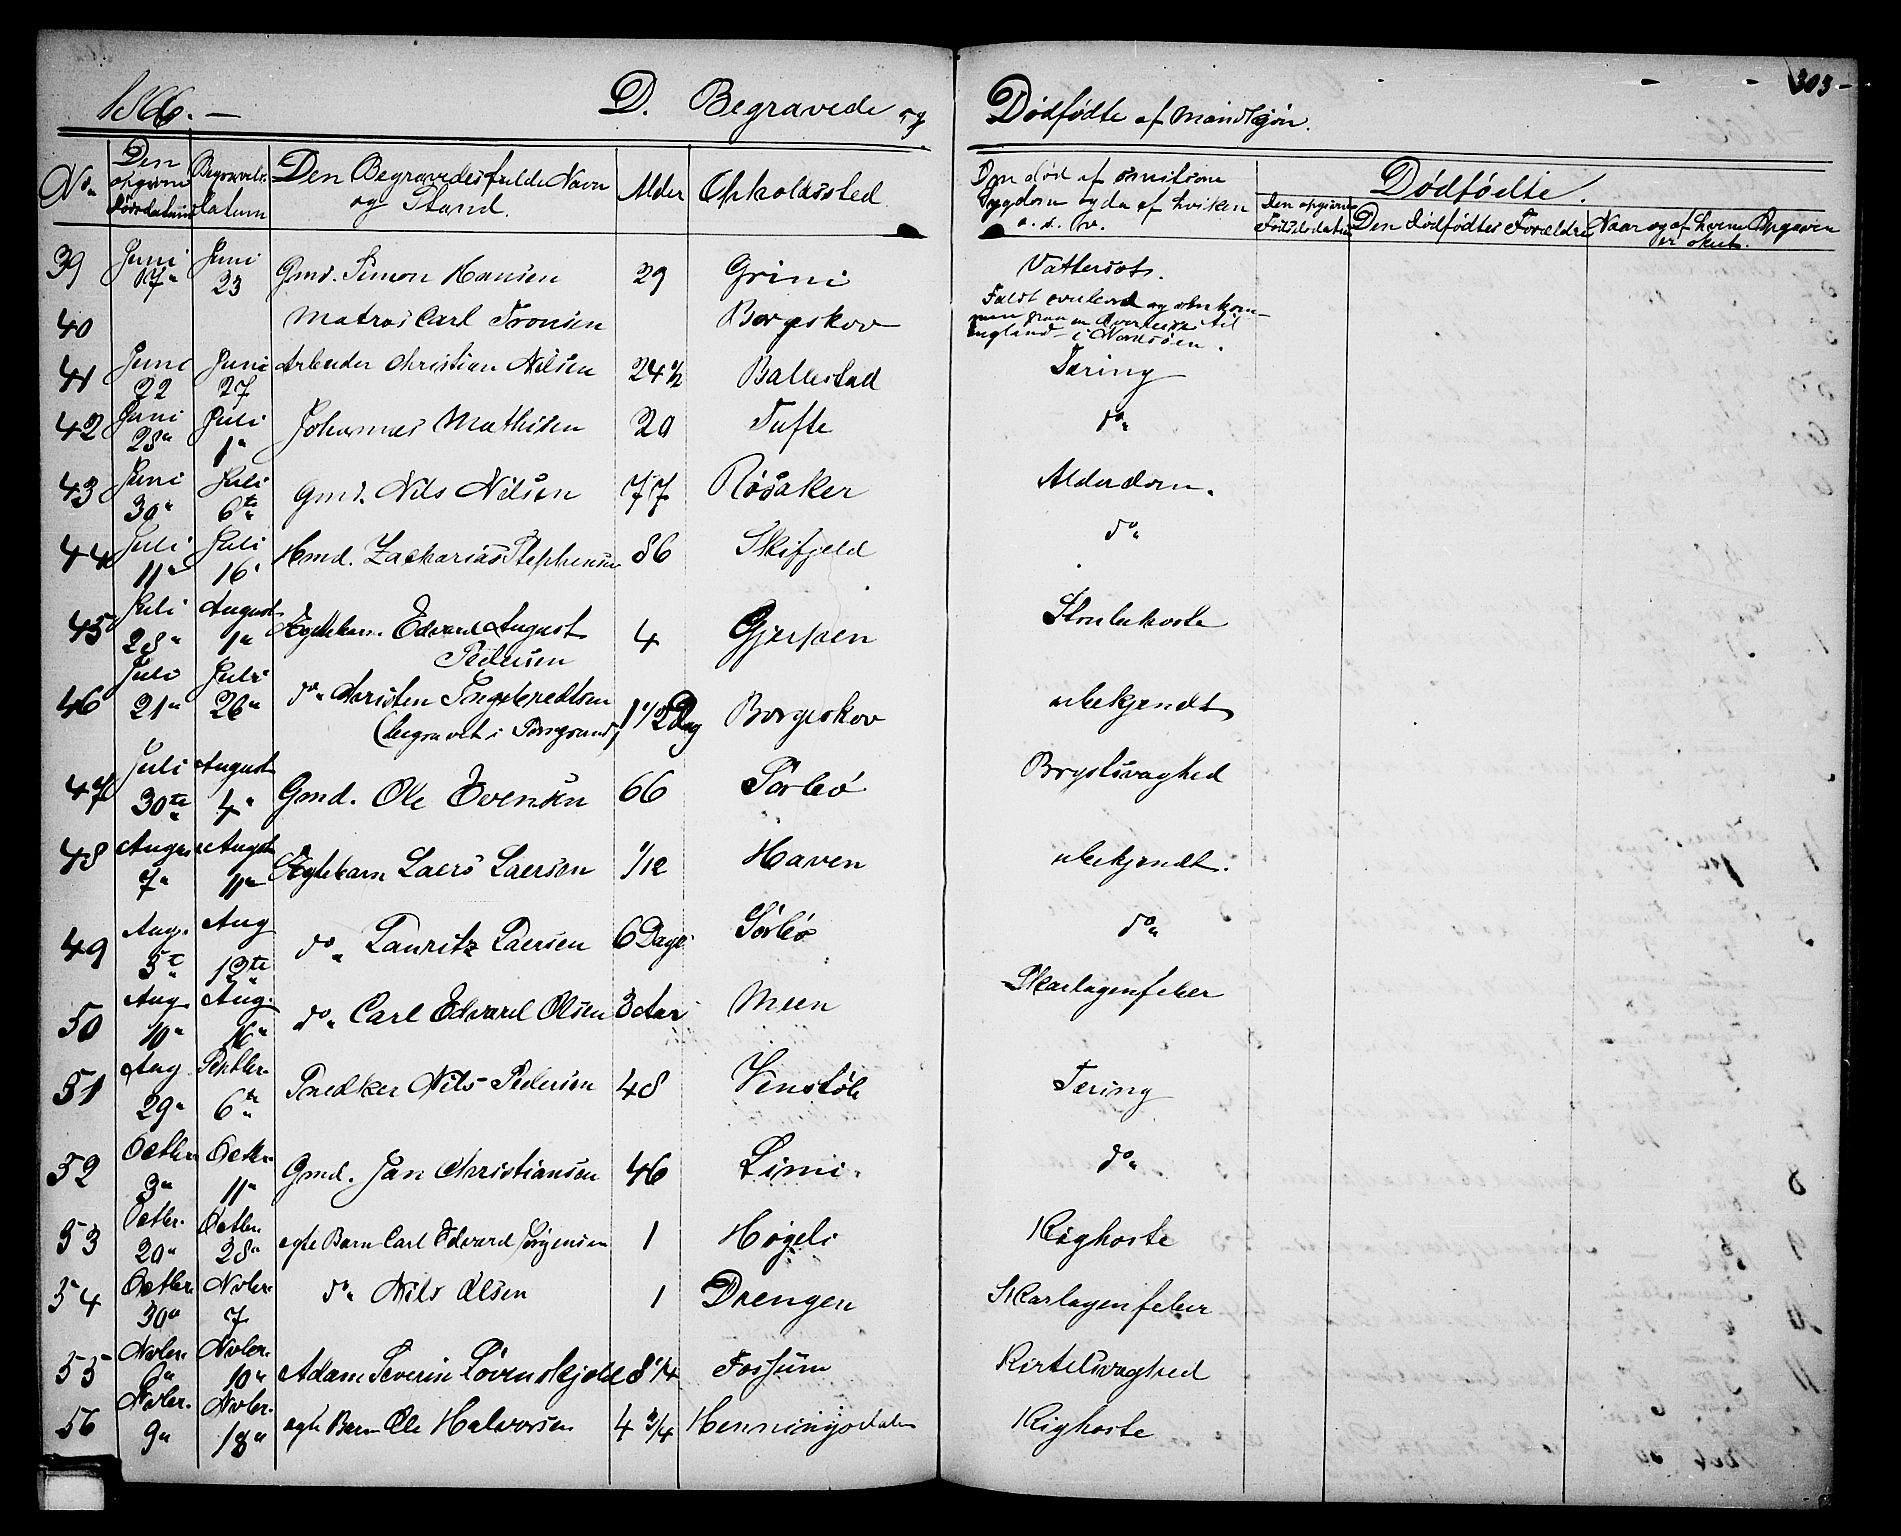 303-
1866. — D. Begravede og Dødfødte af Mandkjøn.
No. Den opgivne Dødsdatum Begravelsesdatum Den Begravedes fulde Navn og Stand. Alder Opholdssted. Død af smitsom Sygdom og da af hvilken o. s. v. Dødfødte.
Den opgivne Fødselsdatum Den Dødfødtes Forældre Naar og af hvem Opgaven er skeet.
39 Juni 17" Juni 23 Gmd. Simon Hansen 29 Grini Vattersot.
40 Matros Carl Tronsen Borgeskov Faldt overbord og omkom-
men paa en Overreise til
England i Nordsøen.
41 Juni 22 Juni 27 Arbeider Christian Nilsen 24 1/2 Ballestad Tæring
42 Juni 23" Juli 1" Johannes Mathisen 20 Tufte do"
43 Juni 30" Juli 6te Gmd. Nils Nilsen 77 Røsaker Alderdom.
44 Juli 11" Juli 16" Hmd. Zacharias Stephensen 86 Skifjeld do"
45 Juli 28" August 1" Ægtebarn. Edvard August
Pedersen 4 Gjerpen Strubehoste
46 Juli 21" Juli 26" do" Christen Ingebredtsen
(begravet i Porsgrund) 1 1/2 Dag Borgeskov ubekjendt
47 Juli 30te August 4" Gmd. Ole Evensen 66 Sørbø Brystsvaghed
48 August 7" August 11" Ægtebarn Laers Laersen 1/12 Haven ubekjendt.
49 Aug. 5te Aug 12te do" Lauritz Laersen 6 Dage Sørbø do"
50 Aug 10" Aug. 16" do" Carl Edvard Olsen 3 Aar Meen Skarlagenfeber
51 Aug 29" Septbr. 6te Snedker Nils Pedersen 48 Venstøb Tæring
52 Octbr. 3" Octbr. 11" Gmd. Jan Christiansen 46 Limi. do"
53 Octbr. 20" Octbr. 28" ægte Barn Carl Edvard Jørgensen 1 Høgeli Kighoste
54 Octbr. 30" Novbr. 7 do" Nils Olsen 1 Drengen Skarlagenfeber
55 Novbr. 6" Novbr. 10" Adam Severin Løvenskjold 8 1/4 Fossum Kirtelsvaghed
56 Novbr. 9" Novbr. 18" ægte Barn Ole Halvorsen 4 3/4 Henningsdalen Kighoste